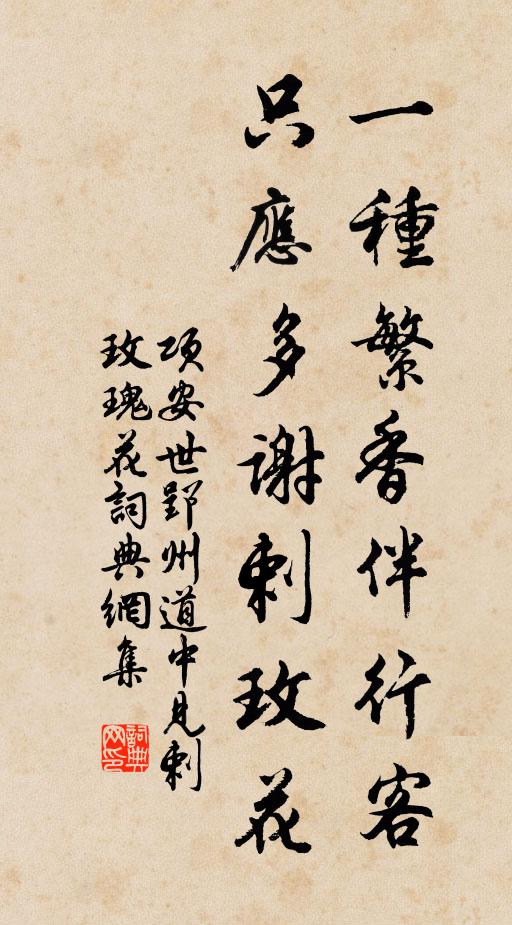 一種繁香伴行客
只應多謝刺玫花
項安世郢州道中見刺
玫瑰花詞典網集
詞典网印